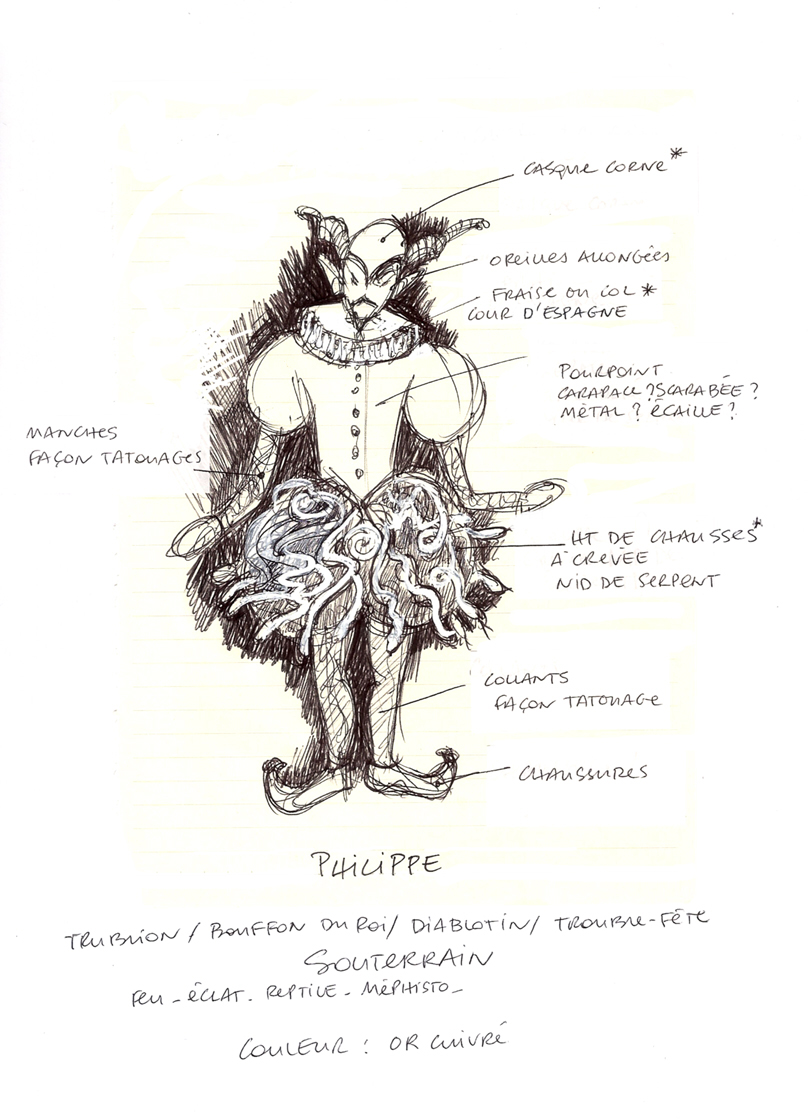 CASQUE CORNE*
OREILLES ALLONGÉES
FRAISE OU COL *
COUR D'ESPAGNE
POURPOINT
CARAPACE ? SCARABÉE ?
MÉTAL ? ÉCAILLE ?
MANCHES
FAÇON TATOUAGES
HT DE CHAUSSES*
À CREVÉE
NID DE SERPENT
COLLANTS
FAÇON TATOUAGE
CHAUSSURES
PHILIPPE
TRUBLION / BOUFFON DU ROI / DIABLOTIN / TROUBLE-FÊTE
SOUTERRAIN
FEU - ÉCLAT - REPTILE - MÉPHISTO -
COULEUR : OR CUIVRÉ